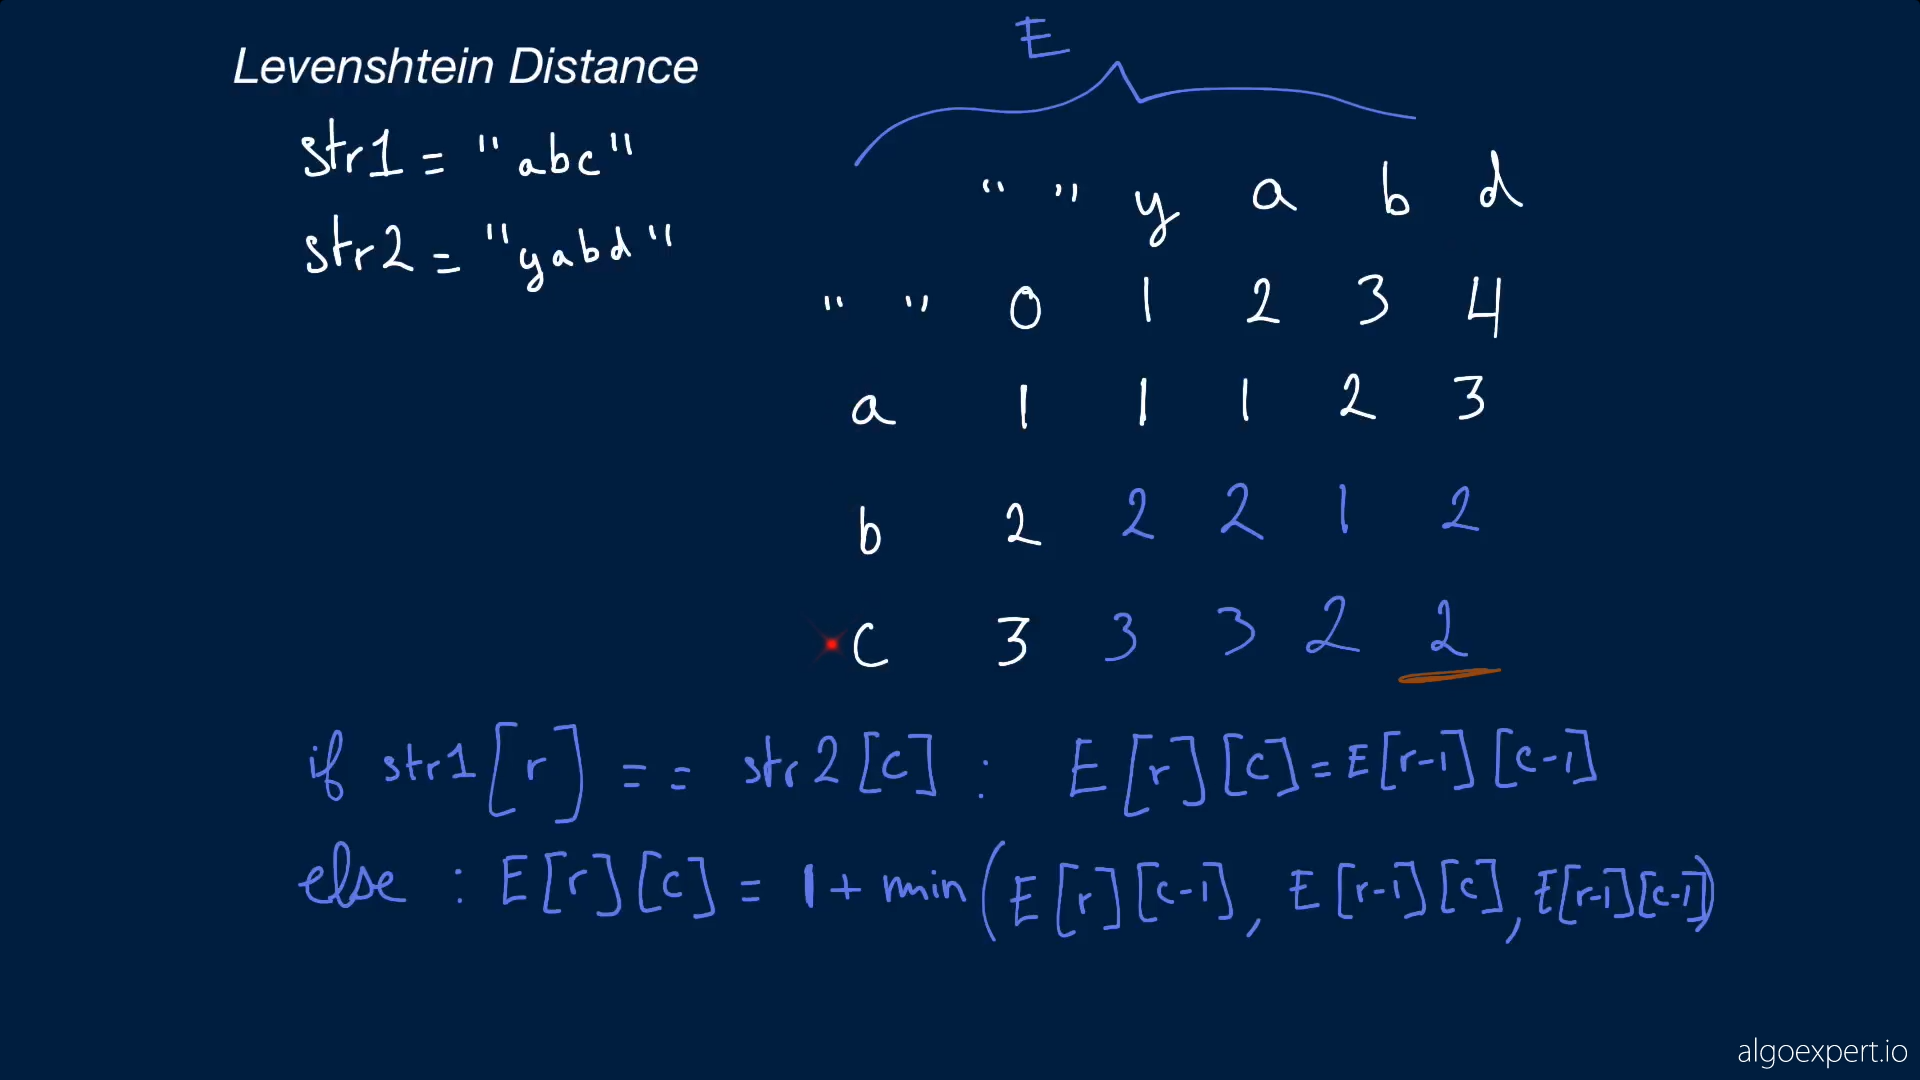 Levenshtein Distance
str1 = "abc"
str2 = "yabd"
E
" " y a b d
" " 0 1 2 3 4
a 1 1 1 2 3
b 2 2 2 1 2
c 3 3 3 2 2
if str1[r] == str2[c] : E[r][c] = E[r-1][c-1]
else : E[r][c] = 1 + min(E[r][c-1], E[r-1][c], E[r-1][c-1])
algoexpert.io